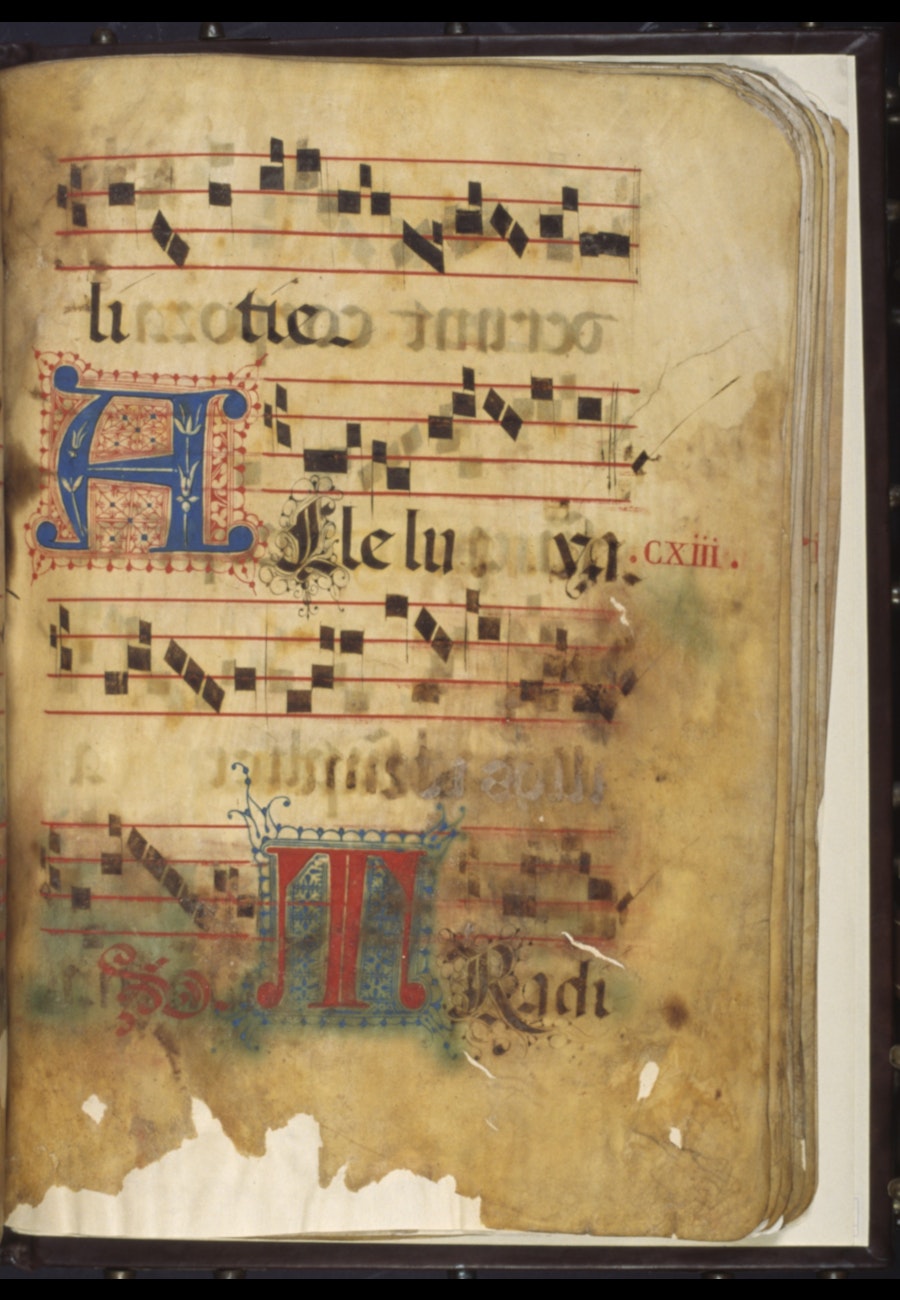 li tie
Alleluya. .cxiii.
So. TRadi